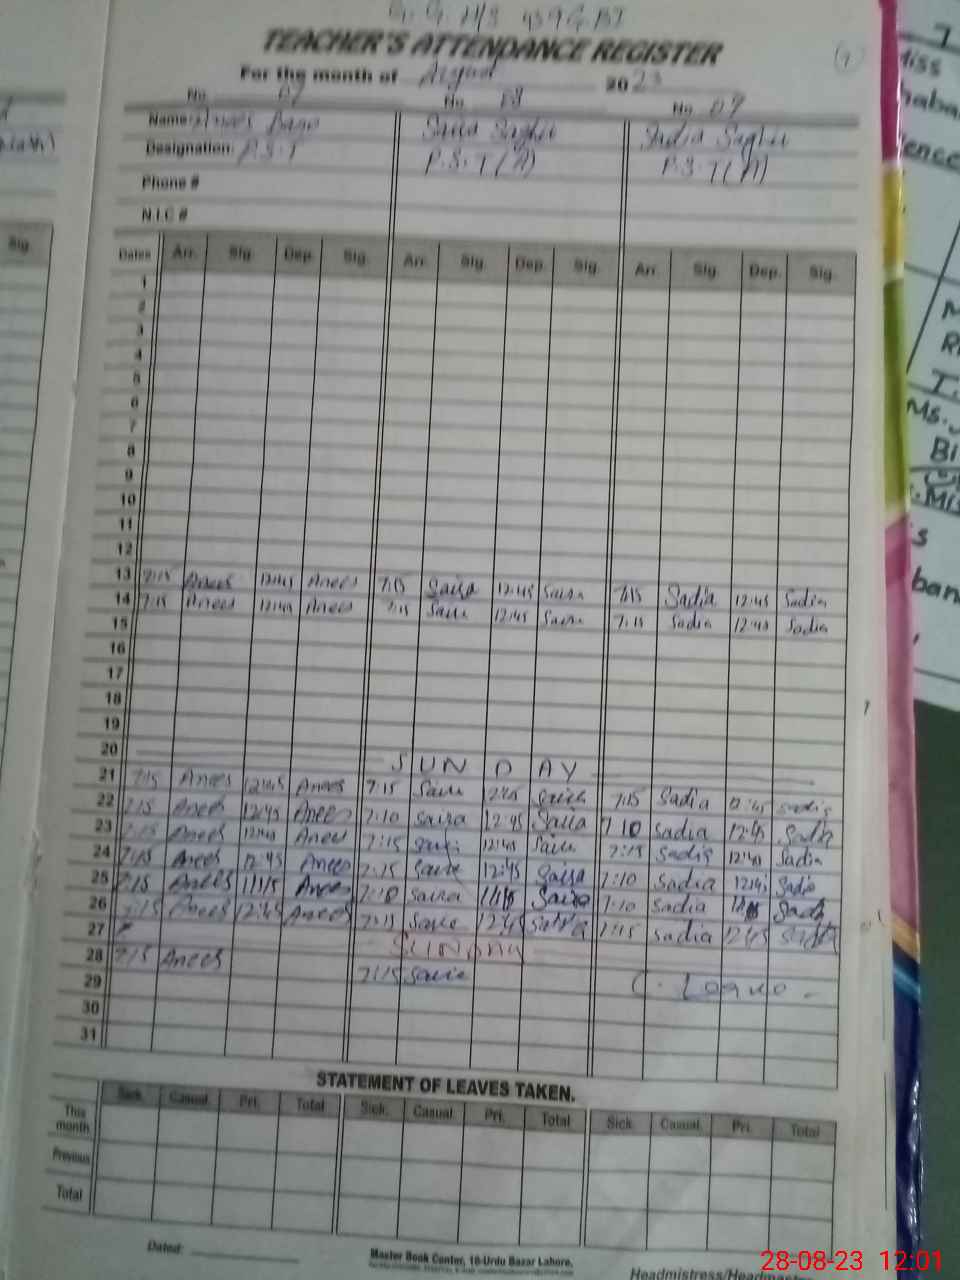 TEACHER'S ATTENDANCE REGISTER
For the month of August 2023
No. 07 No. 08 No. 09
Name: Anees Bano Saira Saghir Sadia Saghir
Designation: P.S.T P.S.T (A) P.S.T (A)
Phone #
N.I.C #
Dates Arr. Sig. Dep. Sig. Arr. Sig. Dep. Sig. Arr. Sig. Dep. Sig.
1
2
3
4
5
6
7
8
9
10
11
12
13 7:15 Anees 12:45 Anees 7:15 Saira 12:45 Saira 7:15 Sadia 12:45 Sadia
14 7:15 Anees 12:45 Anees 7:15 Saira 12:45 Saira 7:15 Sadia 12:45 Sadia
15
16
17
18
19
20 SUNDAY
21 7:15 Anees 12:45 Anees 7:15 Saira 12:45 Saira 7:15 Sadia 12:45 Sadia
22 7:15 Anees 12:45 Anees 7:10 Saira 12:45 Saira 7:10 Sadia 12:45 Sadia
23 7:15 Anees 12:45 Anees 7:15 12:45 Saira 7:15 Sadia 12:45 Sadia
24 7:15 Anees 12:45 Anees 7:15 Saira 12:45 Saira 7:10 Sadia Sadia
25 7:15 Anees Anees 7:10 Saira Saira 7:10 Sadia Sadia
26 7:15 Anees 12:45 Anees 7:15 Saira 12:45 Saira 7:15 Sadia 12:45 Sadia
27 SUNDAY
28 7:15 Anees 7:15 Saira C. Leave
29
30
31
STATEMENT OF LEAVES TAKEN.
Sick. Casual. Pri. Total Sick. Casual. Pri. Total Sick. Casual. Pri. Total
This month
Previous
Total
Dated:
Master Book Center, 18-Urdu Bazar Lahore.
Headmistress/Headmas
28-08-23 12:01